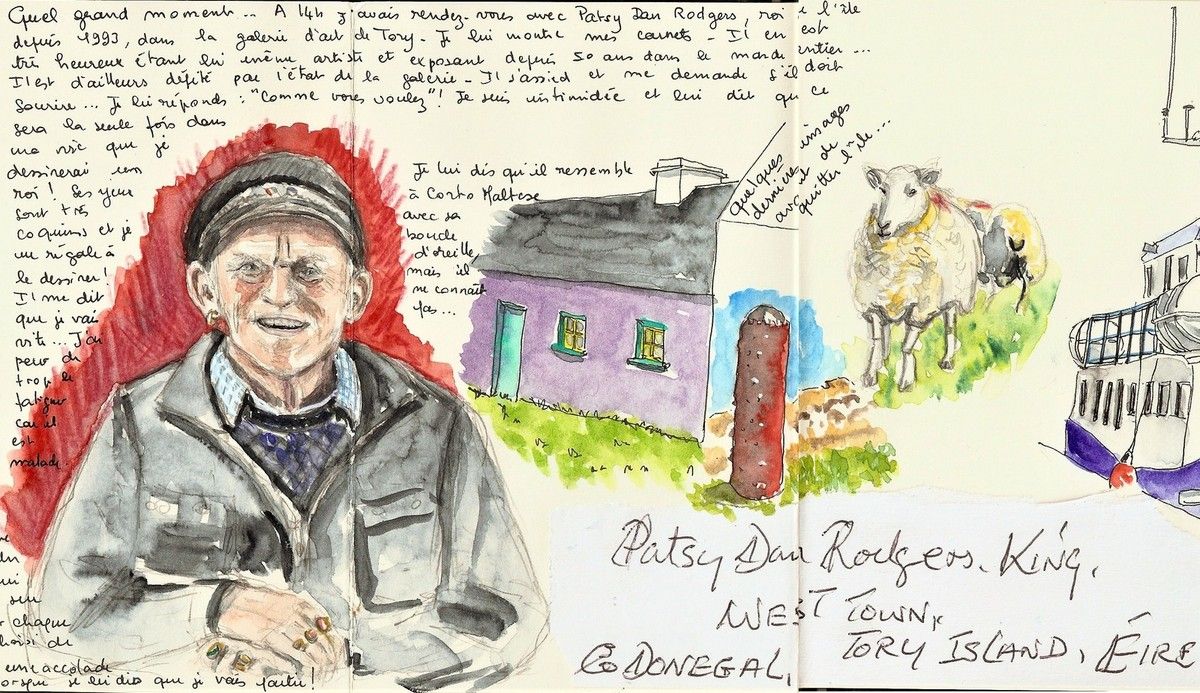 Quel grand moment... A 14h j'avais rendez-vous avec Patsy Dan Rodgers, roi de l'île
depuis 1993, dans la galerie d'art de Tory. Je lui montre mes carnets. Il en est
très heureux étant lui même artiste et exposant depuis 50 ans dans le monde entier...
Il est d'ailleurs dépité par l'état de la galerie. Il s'assied et me demande s'il doit
sourire... Je lui réponds : "Comme vous voulez"! Je suis intimidée et lui dit que ce
sera la seule fois dans
ma vie que je
dessinerai un
roi! Ses yeux
sont très
coquins et je
me régale à
le dessiner!
Il me dit
que je vais
vite... J'ai
peur de
trop le
fatiguer
car il
est
malade.
chaque
une accolade
lorsque je lui dis que je vais partir!
Je lui dis qu'il ressemble
à Corto Maltese
avec sa
boucle
d'oreille
mais il
ne connaît
pas...
Quelques images
dernières
avant de
quitter l'île...
Patsy Dan Rodgers. King.
WEST TOWN,
TORY ISLAND, ÉIRE
Co DONEGAL,